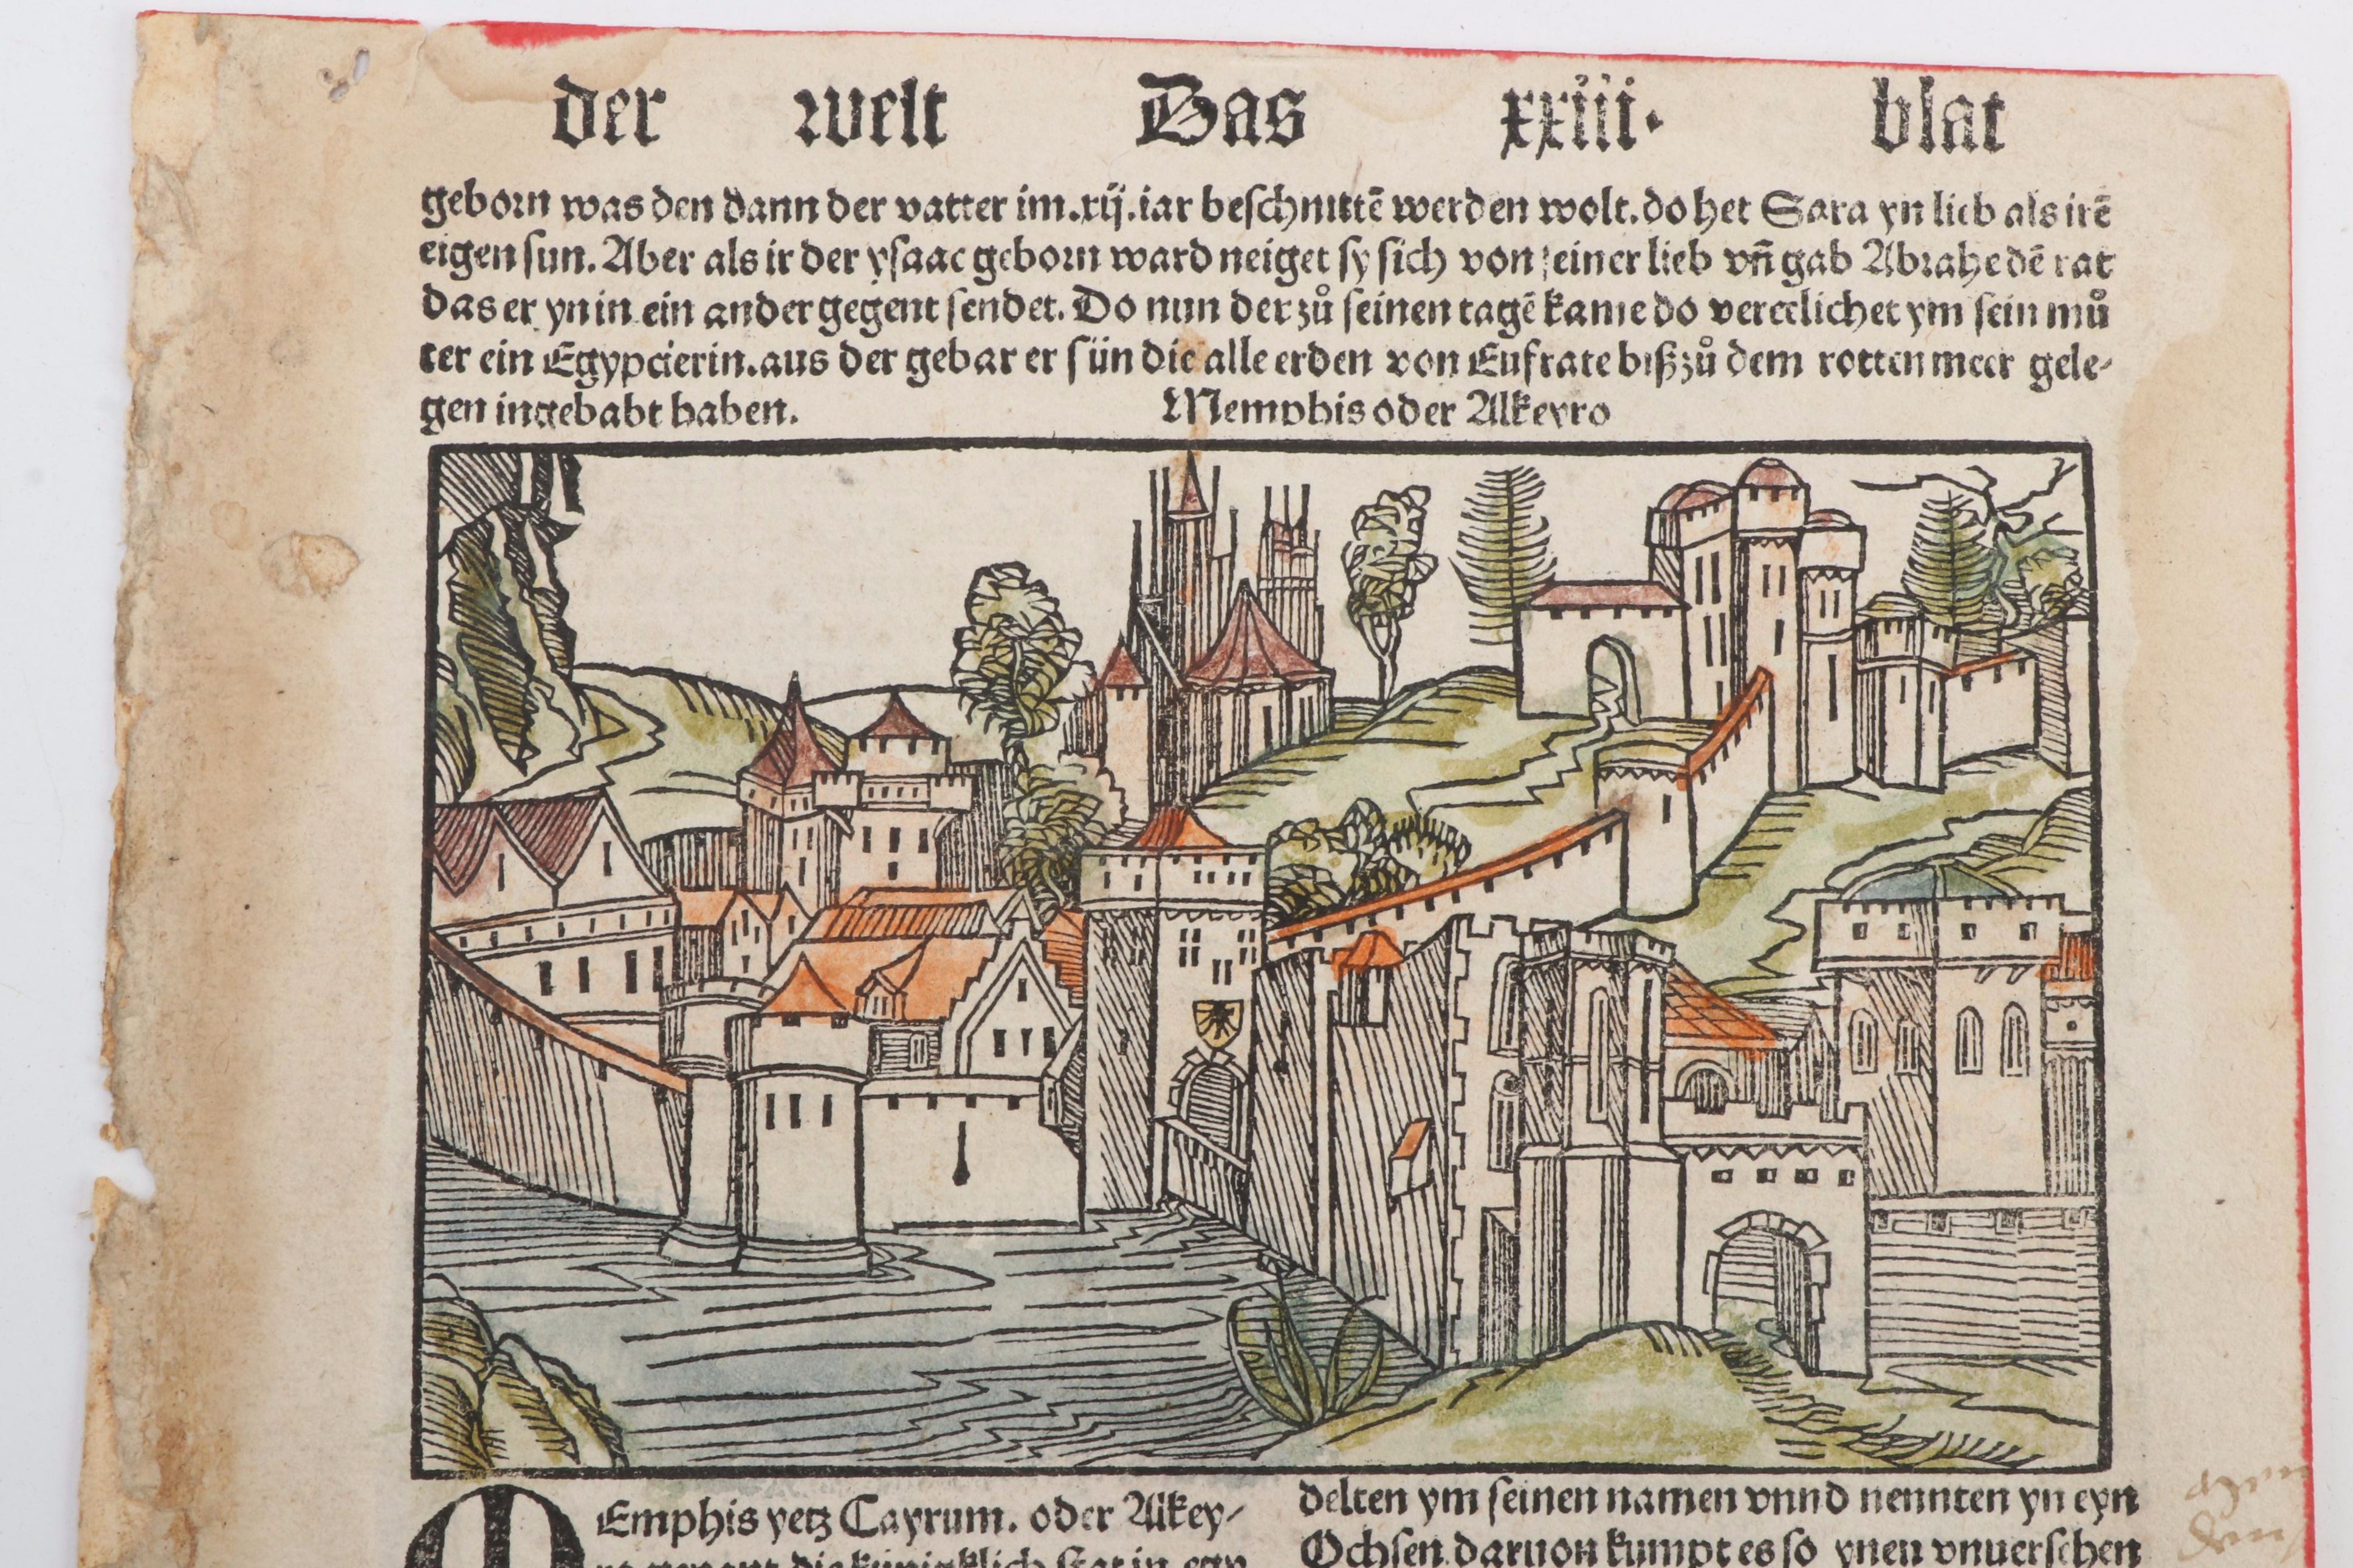 der welt Das xxiii. blat
geborn was den dann der vatter im .xij. iar beschnittē werden wolt. do het Sara yn lieb als irē
eigen sun. Aber als ir der ysaac geborn ward neiget sy sich von seiner lieb vñ gab Abrahe dē rat
das er yn in ein ander gegent sendet. Do nun der zů seinen tagē kame do vereelichet ym sein mů
ter ein Egypcierin. aus der gebar er sün die alle erden von Eufrate biß zů dem rotten meer gele-
gen ingehabt haben. Memphis oder Alkeyro
MEmphis yetz Cayrum. oder Alkey-
die küniglich stat in egy
delten ym seinen namen vnnd nennten yn eyn
Ochsen. daruon kumpt es so ynen vnuersehen